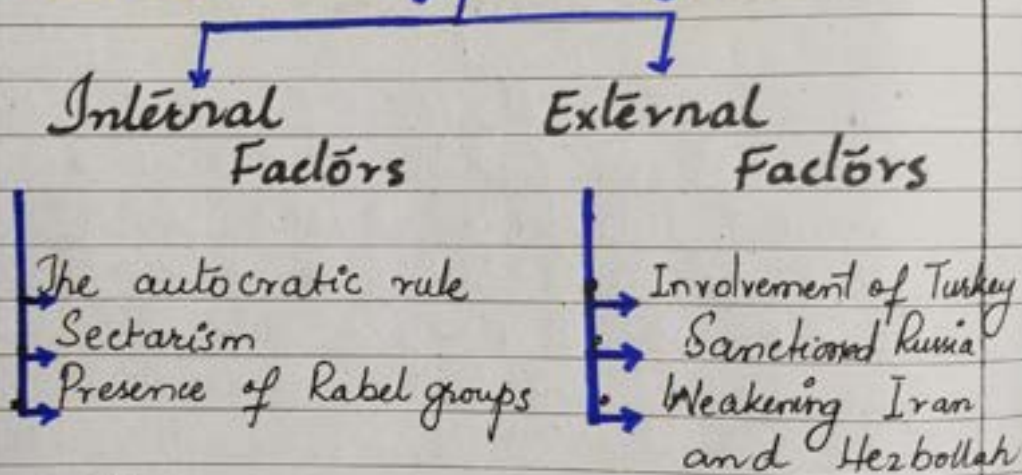 Internal
Factors
The autocratic rule
Sectarism
Presence of Rabel groups
External
Factors
Involvement of Turkey
Sanctioned Russia
Weakening Iran
and Hezbollah